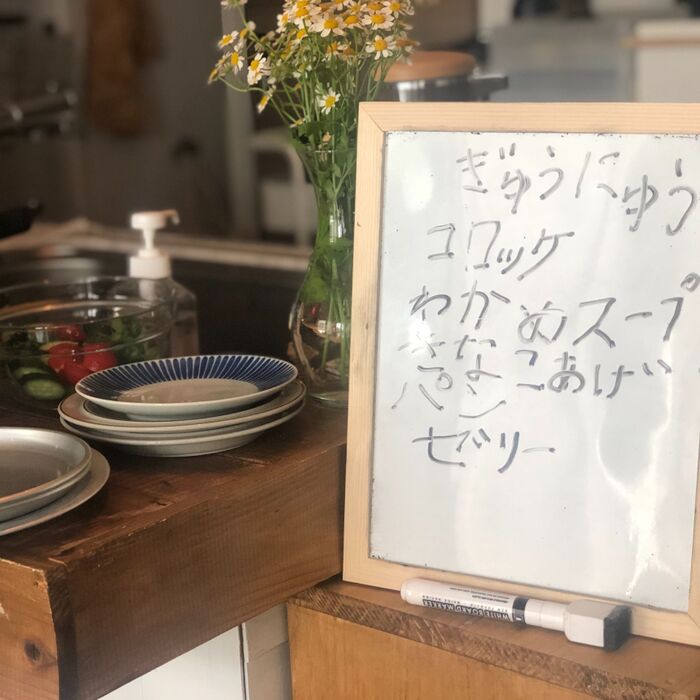 ぎゅうにゅう
コロッケ
わかめスープ
きなこあげ
パン
ゼリー
WHITEBOARD MARKER